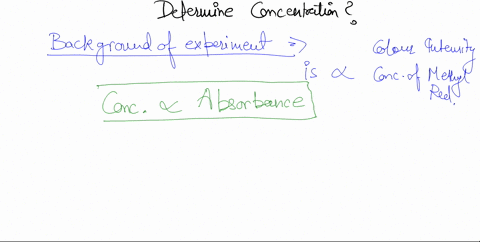 Determine Concentration?
Background of experiment => Colour Intensity
is ∝ Conc. of Methyl Red.
Conc. ∝ Absorbance